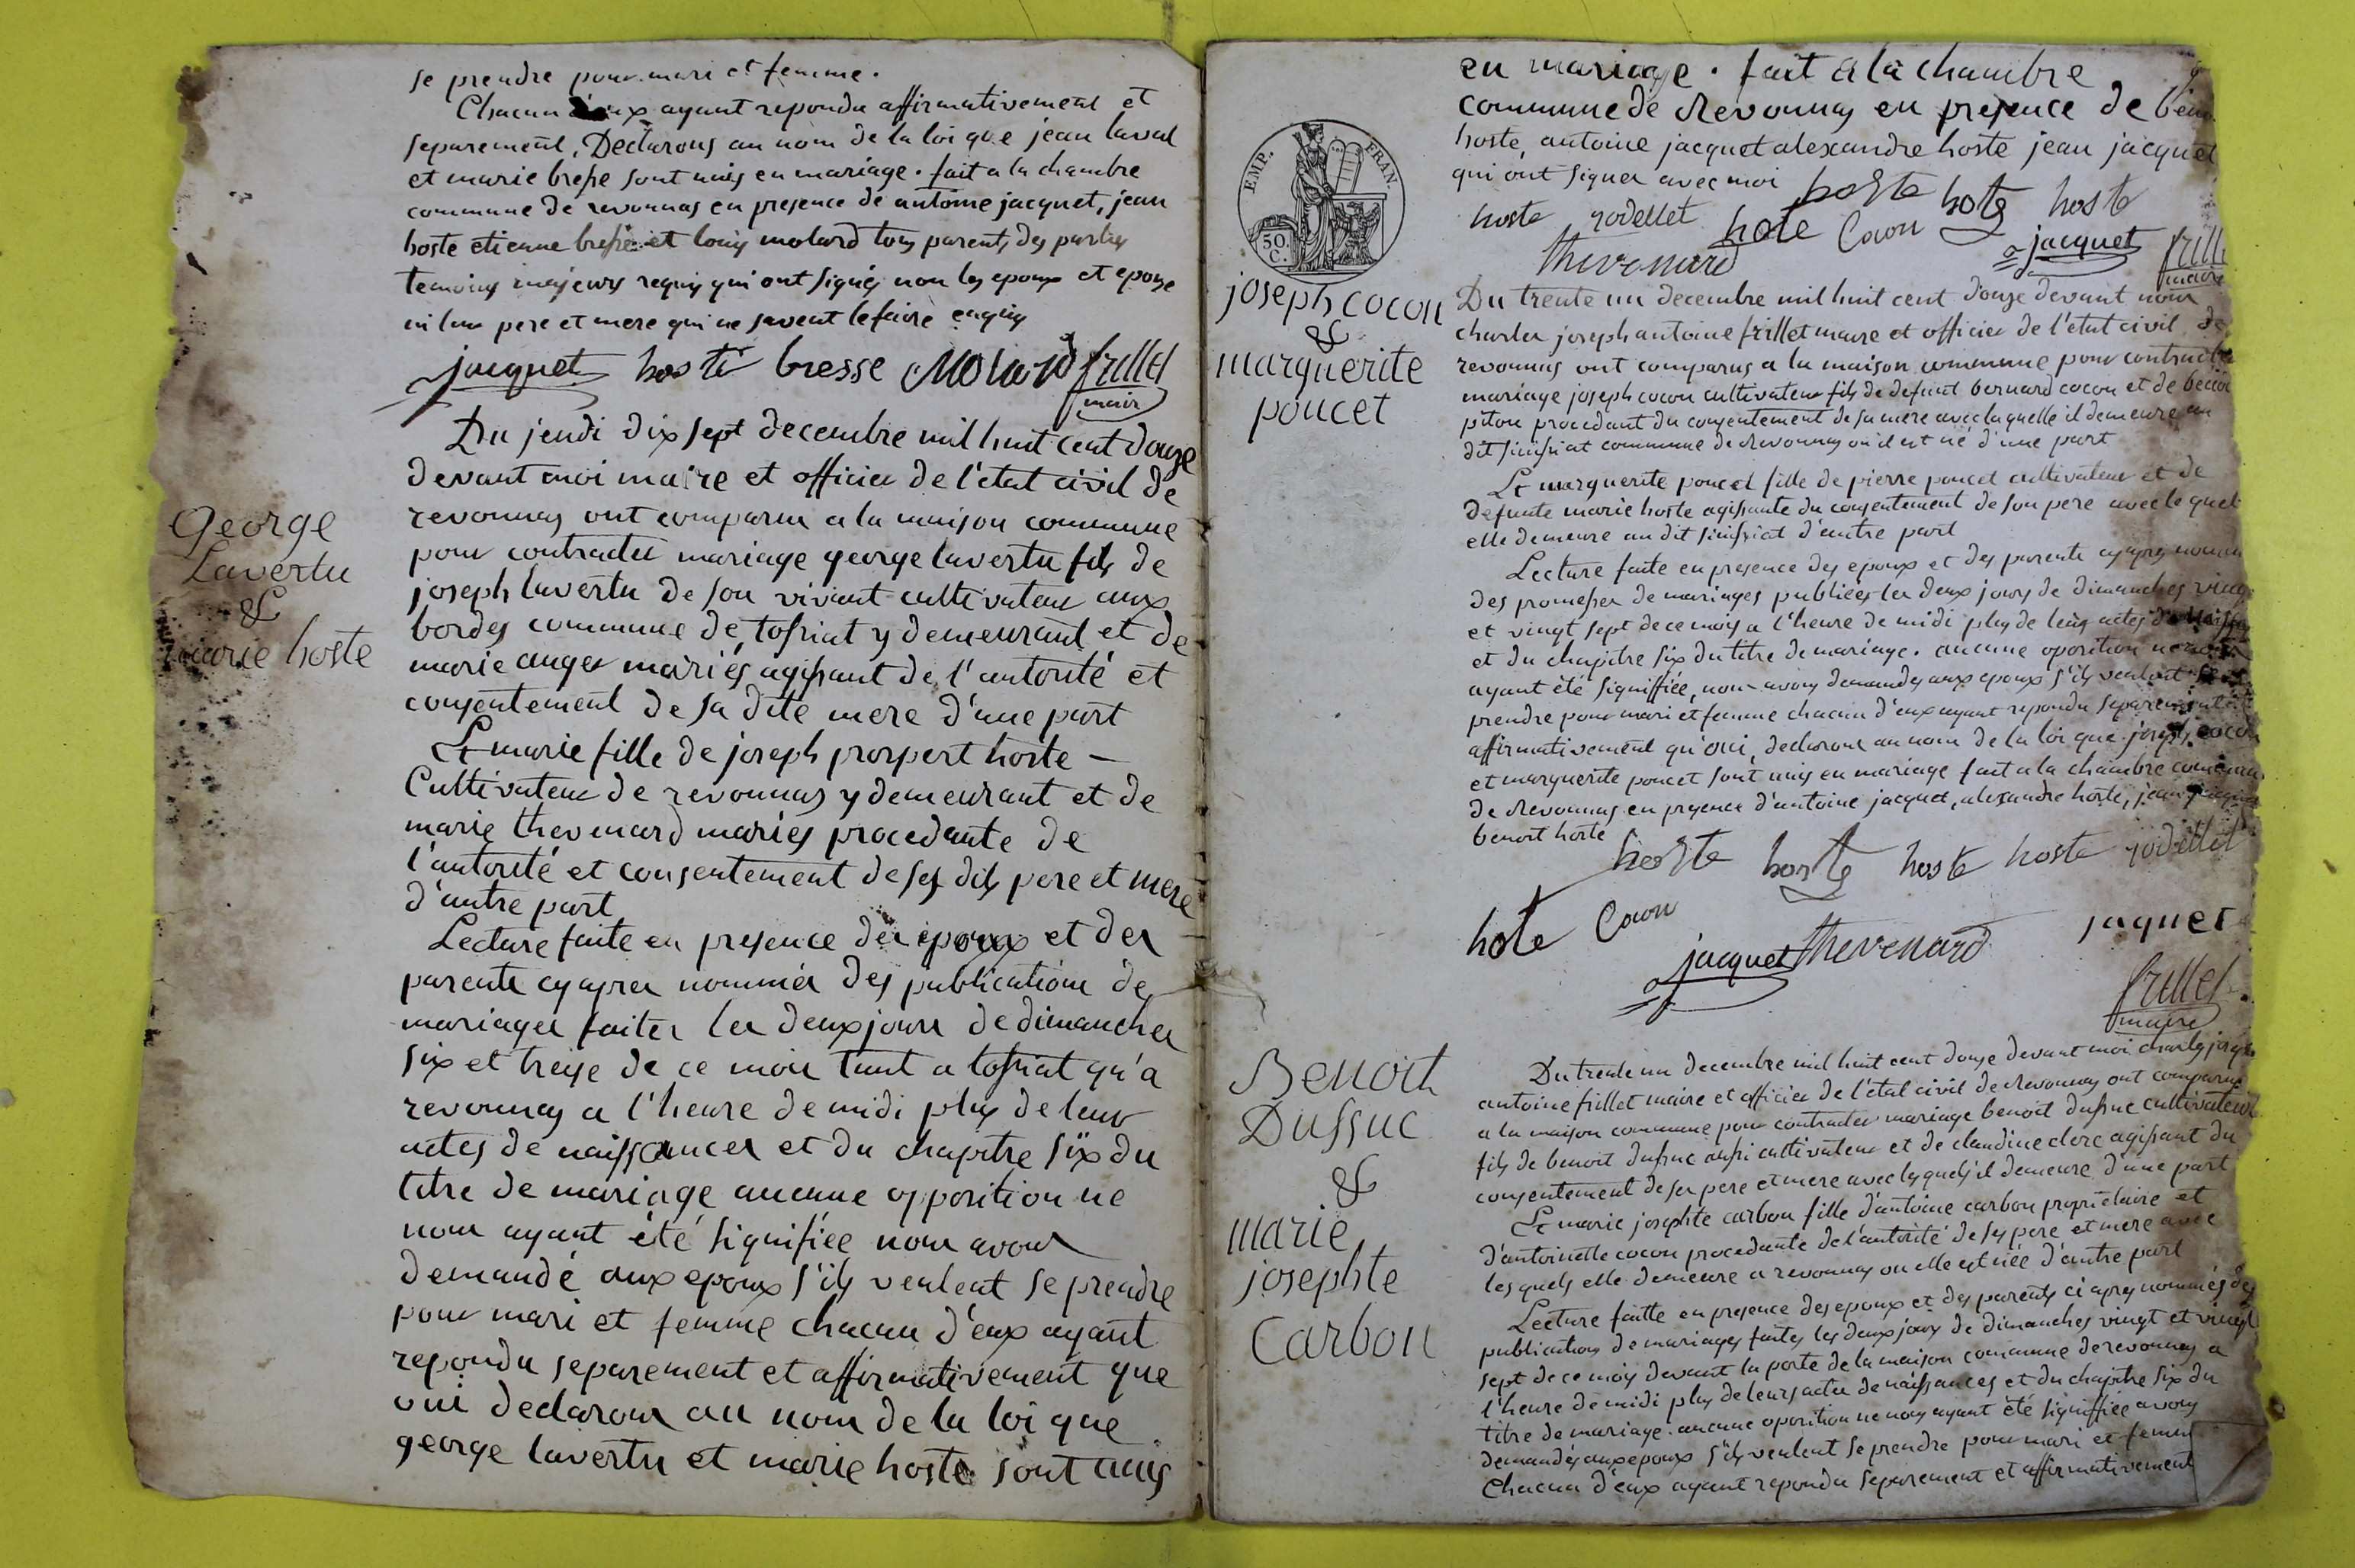 se prendre pour mari et femme.
Chacun d'eux ayant repondu affirmativement et
separement, Declarons au nom de la loi que jean laval
et marie bresse sont unis en mariage. fait a la chambre
commune de revonnas en presence de antoine jacquet, jean
hoste etienne bresse et louis molard tous parents des parties
temoins majeurs requis qui ont signés non les epoux et epouse
ni leur pere et mere qui ne savent le faire enquis
jacquet hoste bresse Molard frillet
maire
George
Lavertu
&
marie hoste
Du jeudi dix sept decembre mil huit cent douze
devant moi maire et officier de l'état civil de
revonnas ont comparu a la maison commune
pour contracter mariage george lavertu fils de
joseph lavertu de son vivant cultivateur aux
bordes commune de tossiat y demeurant et de
marie auger mariés agissant de l'autorité et
consentement de sa dite mere d'une part
Et marie fille de joseph prospert hoste –
Cultivateur de revonnas y demeurant et de
marie thevenard mariés procedante de
l'autorité et consentement de ses dits pere et mere
d'autre part
Lecture faite en presence des epoux et des
parents cy apres nommés des publications de
mariages faites les deux jours de dimanches
six et treize de ce mois tant a tossiat qu'a
revonnas a l'heure de midi plus de leur
actes de naissances et du chapitre six du
titre de mariage aucune opposition ne
nous ayant été signifiée nous avons
demandé aux epoux s'ils veulent se prendre
pour mari et femme chacun d'eux ayant
repondu separement et affirmativement que
oui declarons au nom de la loi que
george lavertu et marie hoste sont unis
en mariage. fait a la chambre
commune de Revonnas en presence de
hoste, antoine jacquet alexandre hoste jean jacquet
qui ont signer avec moi
hoste hoste hoste
hoste rodellet hote Cocon jacquet
thevenard frillet
maire
EMP. FRAN.
50.
C.
joseph cocon
&
marguerite
poucet
Du trente un decembre mil huit cent douze devant nous
charles joseph antoine frillet maire et officier de l'état civil de
revonnas ont comparus a la maison commune pour contracter
mariage joseph cocon cultivateur fils de defunt bernard cocon et de
piton procedant du consentement de sa mere avec laquelle il demeure au
dit commune de Revonnas ou il est né d'une part
Et marguerite poucet fille de pierre poucet cultivateur et de
defunte marie hoste agissante du consentement de son pere avec lequel
elle demeure au dit d'autre part
Lecture faite en presence des epoux et des parents cy apres
des promesses de mariages publiées les deux jours de dimanches
et vingt sept de ce mois a l'heure de midi plus de leurs actes
et du chapitre six du titre de mariage. aucune oposition
ayant été signiffiée, nous avons demandes aux epoux s'ils veulent
prendre pour mari et femme chacun d'eux ayant repondu separement
affirmativement qu'oui, declarons au nom de la loi que joseph cocon
et marguerite poucet sont unis en mariage fait a la chambre commune
de Revonnas en presence d'antoine jacquet, alexandre hoste, jean jacquet
benoit hoste
hoste hoste hoste hoste rodellet
hote Cocon jacquet thevenard jaquet
frillet
maire
Benoit
Dussuc
&
marie
josephte
Carbon
Du trente un decembre mil huit cent douze devant moi charles joseph
antoine frillet maire et officier de l'état civil de Revonnas ont comparus
a la maison commune pour contracter mariage benoit dussuc cultivateur
fils de benoit dussuc aussi cultivateur et de claudine clerc agissant du
consentement de ses pere et mere avec lesquels il demeure d'une part
Et marie josephte carbon fille d'antoine carbon proprietaire et
d'antoinette cocon procedante de l'autorité de ses pere et mere avec
lesquels elle demeure a revonnas ou elle est née d'autre part
Lecture faitte en presence des epoux et des parents ci apres nommés des
publications de mariages faites les deux jours de dimanches vingt et vingt
sept de ce mois devant la porte de la maison commune de revonnas a
l'heure de midi plus de leurs actes de naissances et du chapitre six du
titre de mariage. aucune oposition ne nous ayant été signiffiée avons
demandés aux epoux s'ils veulent se prendre pour mari et femme
Chacun d'eux ayant repondu separement et affirmativement